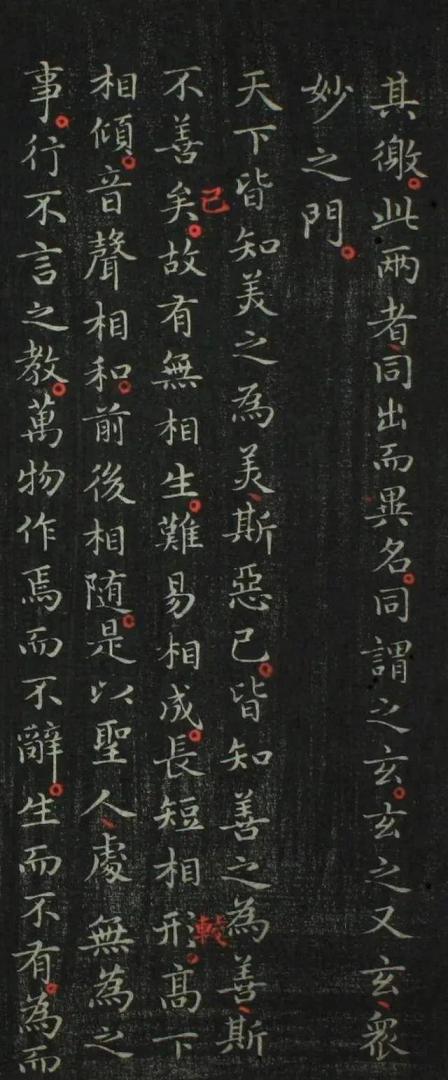 其徼。此兩者、同出而、異名。同謂之玄。玄之又玄、衆
妙之門。
天下皆知美之為美、斯惡已。皆知善之為善、斯
已
較
不善矣。故有無相生。難易相成。長短相形。髙下
相傾。音聲相和。前後相随。是以聖人、處無為之
事。行不言之教。萬物作焉而不辭。生而不有。為而